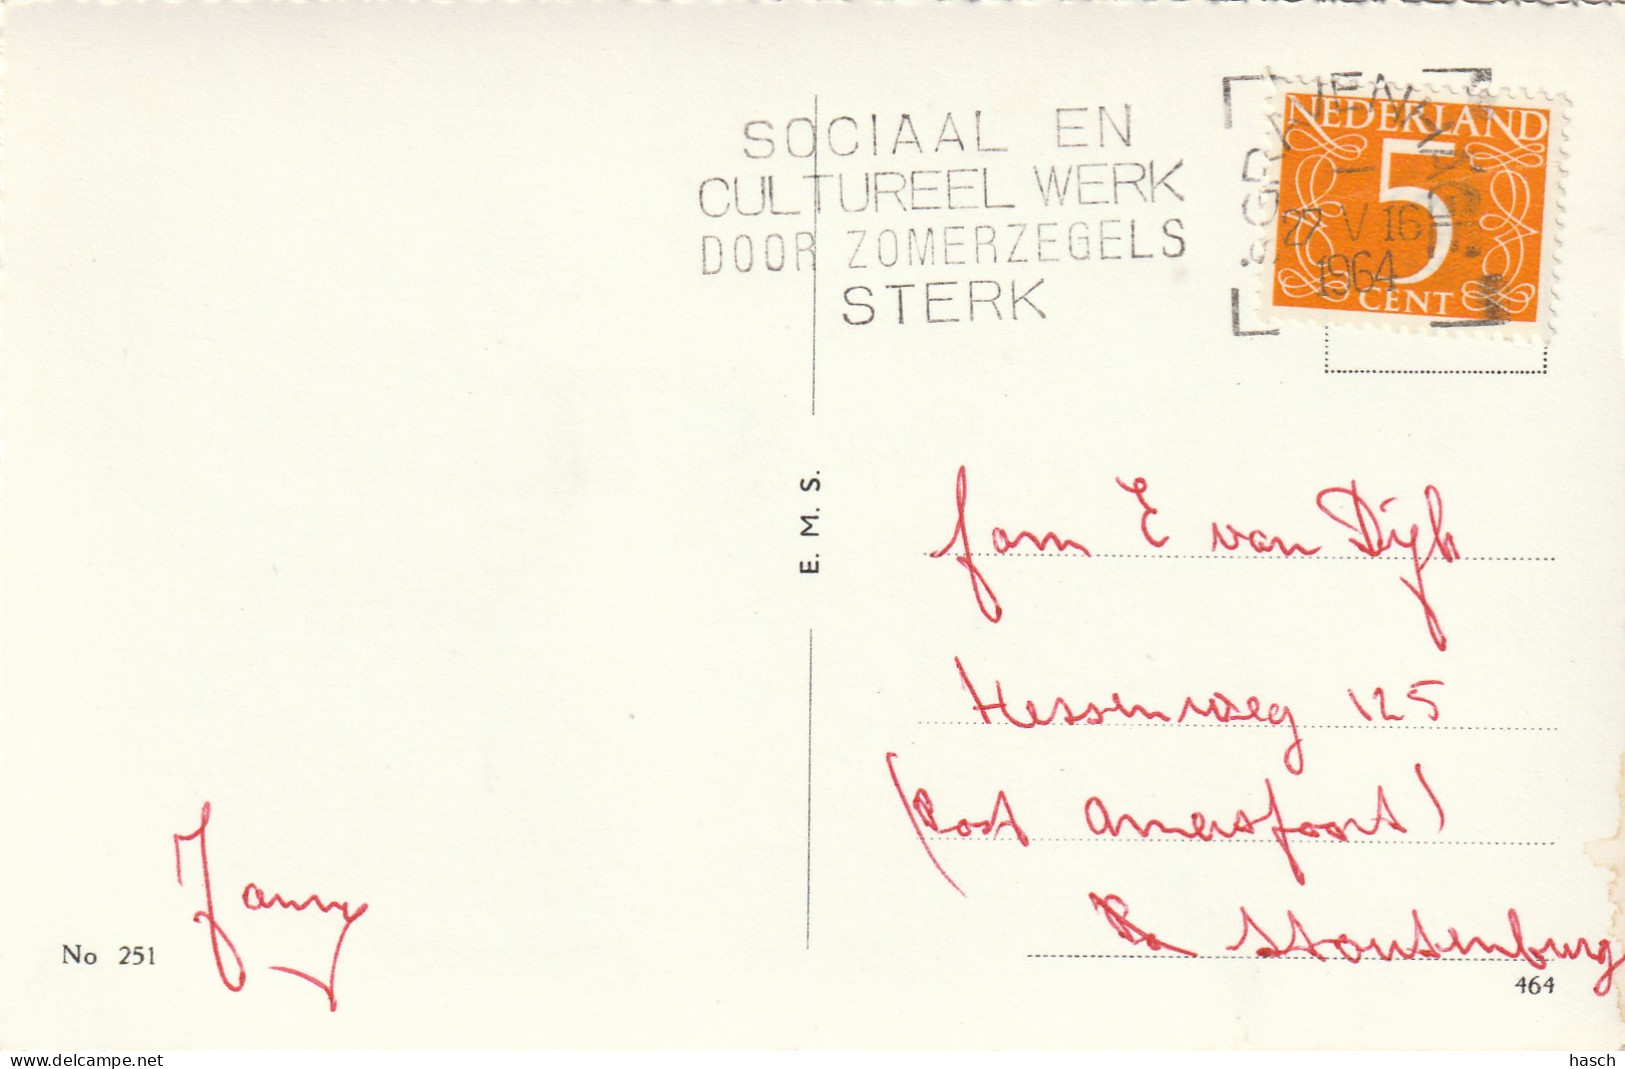 SOCIAAL EN
CULTUREEL WERK
DOOR ZOMERZEGELS
STERK
'sGRAVENHAGE
27 V 16
1964
NEDERLAND
5
CENT
E. M. S.
fam E van Dijk
Hessenweg 125
(Post Amersfoort)
Stoutenburg
Janny
No 251
464
www.delcampe.net
hasch